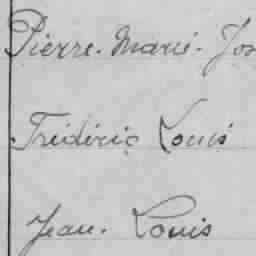 Pierre-Marie-Jos
Frédéric Louis
Jean-Louis